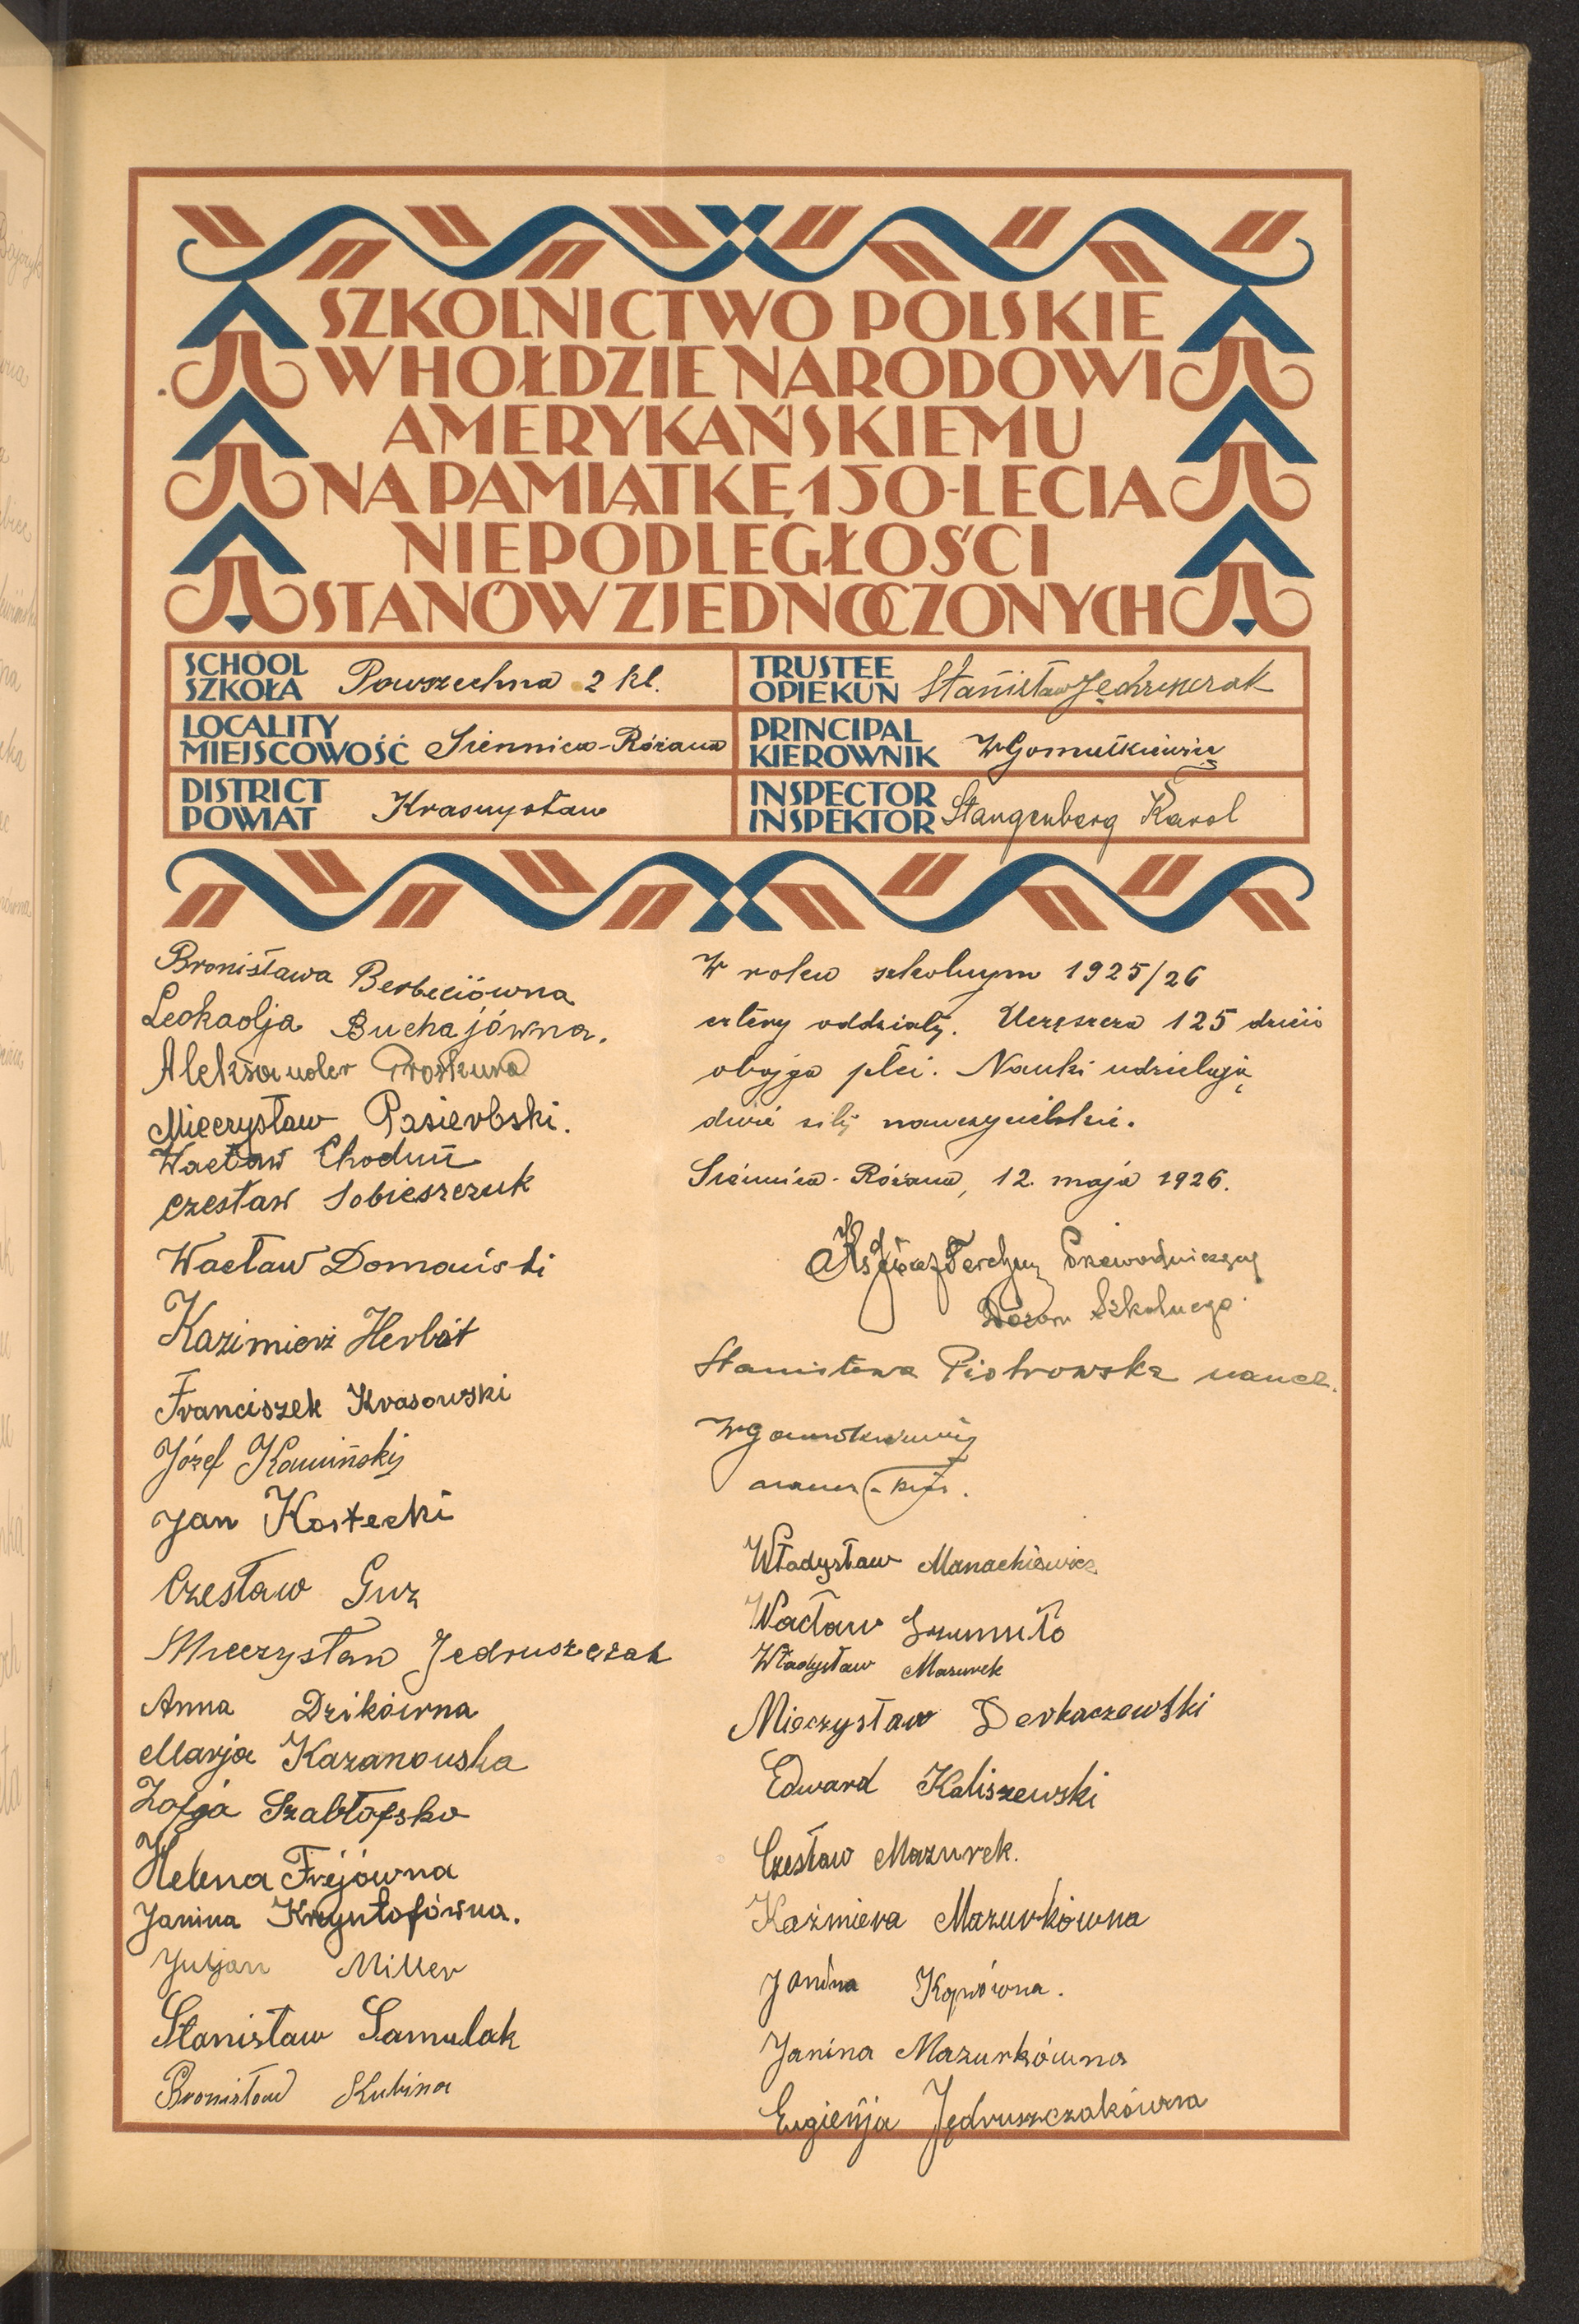 SZKOLNICTWO POLSKIE
W HOŁDZIE NARODOWI
AMERYKAŃSKIEMU
NA PAMIĄTKĘ 150-LECIA
NIEPODLEGŁOŚCI
STANÓW ZJEDNOCZONYCH
SCHOOL
SZKOŁA Powszechna 2 kl.
TRUSTEE
OPIEKUN Stanisław Jędrzejczak
LOCALITY
MIEJSCOWOŚĆ Siennica-Różana
PRINCIPAL
KIEROWNIK W Gomułkiewicz
DISTRICT
POWIAT Krasnystaw
INSPECTOR
INSPEKTOR Stangenberg Karol
Bronisława Berbeciówna
Leokadja Buchajówna.
Aleksander Proskura
Mieczysław Pasierbski.
Wacław Choduń
Czesław Sobieszczuk
Wacław Domański
Kazimierz Herbót
Franciszek Krasowski
Józef Kamiński
Jan Kostecki
Czesław Guz
Mieczysław Jedruszczak
Anna Dzikówna
Marja Kazanowska
Zofja Szabłofska
Helena Fréjówna
Janina Krzysztofówna.
Juljan Miller
Stanisław Samulak
Bronisław Kubina
W roku szkolnym 1925/26
cztery oddziały. Uczęszcza 125 dzieci
obojga płci. Nauki udzielają
dwie siły nauczycielskie.
Siennica-Różana, 12. maja 1926.
Ks Przewodniczący
Dozoru Szkolnego.
Stanisława Piotrowska naucz.
W Gomułkiewicz
Władysław Manachiewicz
Wacław Szumiło
Władysław Mazurek
Mieczysław Derkaczewski
Edward Kaliszewski
Czesław Mazurek.
Kaźmiera Mazurkówna
Janina
Janina Mazurkówna
Eugienja Jędruszczakówna